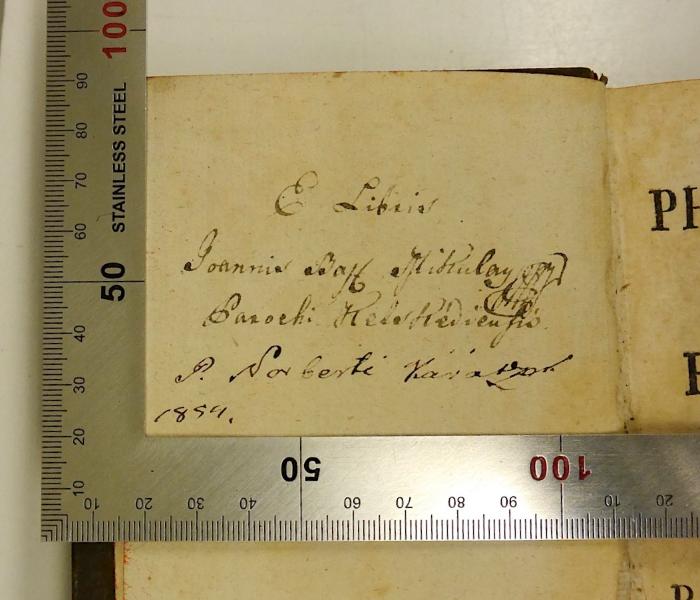 100
90
80
70
60
50
40
30
20
10
STAINLESS STEEL
E Libris
Joannis Bapt Mikulay
Parochi KeleKédiensis
P. Norberti
1854.
PH
10 20 30 40 50 60 70 80 90 100 10 20